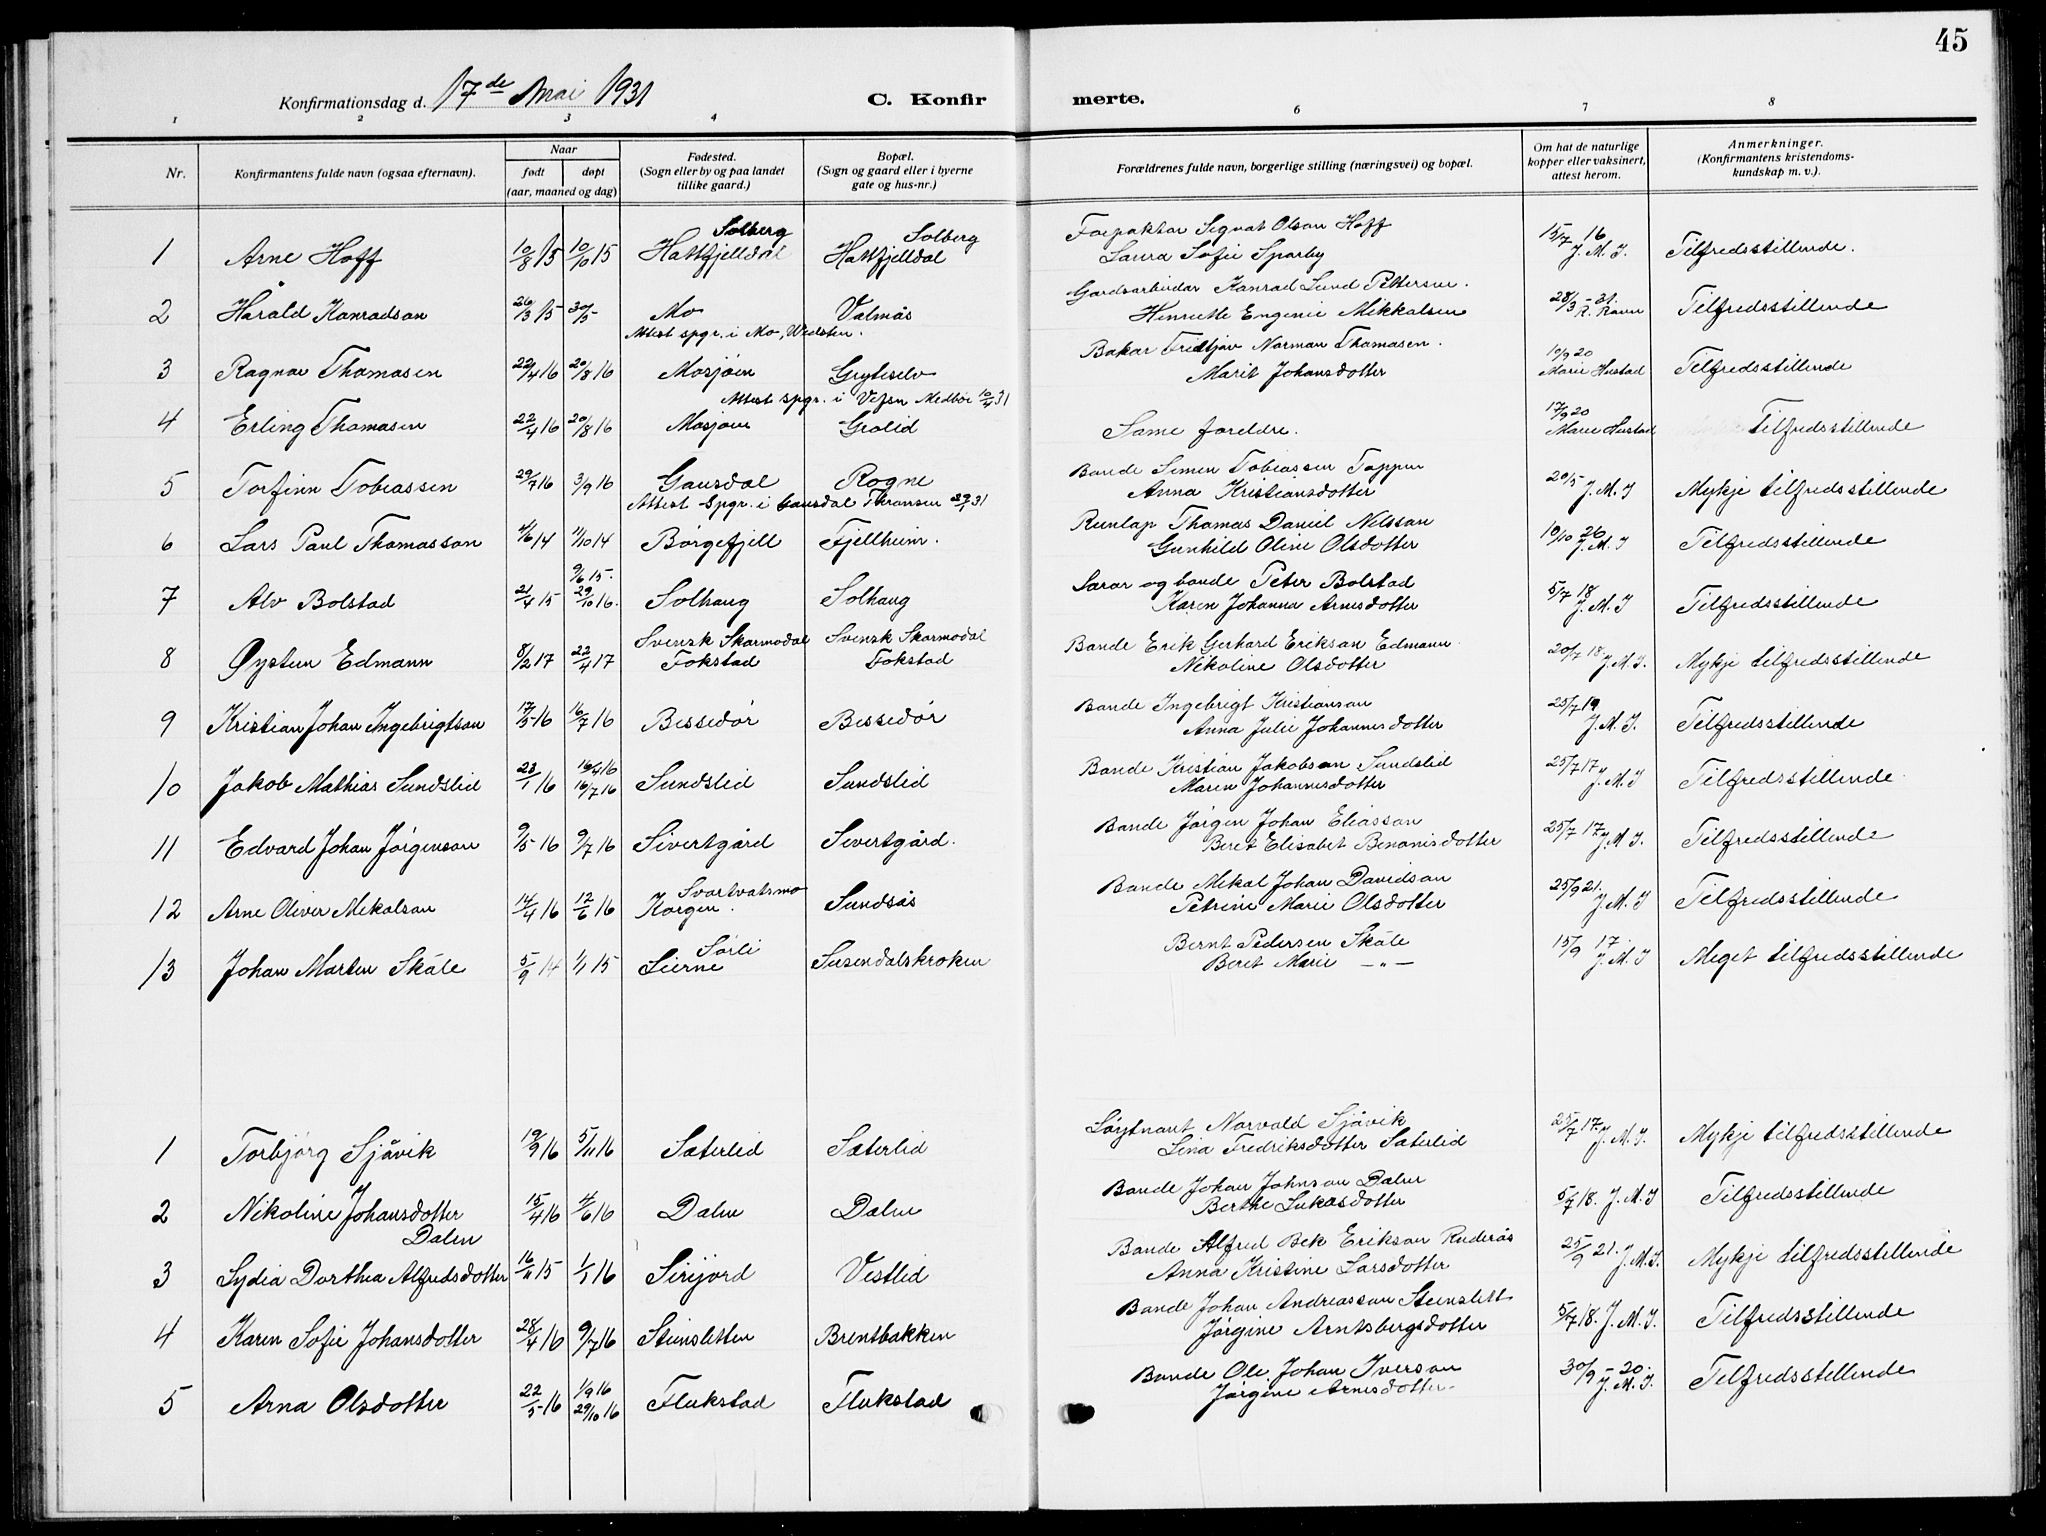 45
Konfirmationsdag d. 17de Mai 1931 C. Konfirmerte.
1 2 3 4 6 7 8
Nr. Konfirmantens fulde navn (ogsaa efternavn). Naar født døpt (aar, maaned og dag) Fødested. (Sogn eller by og paa landet tillike gaard.) Bopæl. (Sogn og gaard eller i byerne gate og hus-nr.) Forældrenes fulde navn, borgerlige stilling (næringsvei) og bopæl. Om hat de naturlige kopper eller vaksinert, attest herom. Anmerkninger. (Konfirmantens kristendomskundskap m. v.).
Solberg Solberg Forpaktar Signat Olson Hoff 15/7 16
1 Arne Hoff 10/8 15 10/10 15 Hattfjelldal Hattfjelldal Laura Sofie Sparby J. M. J. Tilfredsstillende.
Gardsarbeidar Konrad Lund Pettersen.
2 Harald Konradson 26/3 15 30/5 Mo Valmås Henriette Eugenie Mikkalsen 28/3 - 31. R. Ravn Tilfredsstillende
Attest spgr. i Mo,
Bakar Fridtjov Norman Thomasen.
3 Ragnar Thomasen 22/4 16 20/8 16 Mosjøen Gryteselv Marit Johansdotter 10/9 20 Marie Hustad Tilfredsstillende
Attest spgr. i Vefsn Medbøe 10/4 31
4 Erling Thomasen 22/4 16 20/8 16 Mosjøen Grølid Same foreldre. 17/9 20 Marie Hustad Tilfredsstillende
Bonde Simen Tobiassen Toppen
5 Torfinn Tobiassen 29/7 16 3/9 16 Gausdal Rogne Anna Kristiansdotter 20/5 J. M. J Mykje tilfredsstillende
Attest spgr. i Gausdal
6 Lars Paul Thomasson 4/6 14 11/10 14 Børgefjell Fjellheim. Runlap Thomas Daniel Nilsson
Gunhild Oline Olsdotter 10/10 26 J. M. J Tilfredsstillende
9/6 15. Lærar og bonde Peter Bolstad
7 Alv Bolstad 21/4 15 29/10 16. Solhaug Solhaug Karen Johanna Arnesdotter 5/7 18 J. M. J Tilfredsstillende
Svensk Skarmodal Svensk Skarmodal Bonde Erik Gerhard Erikson Edmann
8 Øystein Edmann 8/2 17 22/4 17 Fokstad Fokstad Nikoline Olsdotter 20/7 18 J. M. J. Mykje tilfredsstillende
Bonde Ingebrigt Kristianson
9 Kristian Johan Ingebrigtson 17/5 16 16/7 16 Bessedør Bessedør Anna Julie Johannesdotter 25/7 19 J. M. J. Tilfredsstillende
16/4 16 Bonde Kristian Jakobson Sundslid
10 Jakob Mathias Sundslid 23/1 16 16/7 16 Sundslid Sundslid Maren Johannesdotter 25/7 17 J. M. J Tilfredsstillende
Bonde Jørgen Johan Eliasson
11 Edvard Johan Jørgenson 9/5 16 9/7 16 Sivertgård Sivertgård. Beret Elisabet Benonisdotter 25/7 17 J. M. J. Tilfredsstillende
Svartvatsmo Bonde Mikal Johan Davidson
12 Arne Oliver Mikalson 14/4 16 12/6 16 Korgen. Sundsås Petrine Marie Olsdotter 25/9 21. J. M. J Tilfredsstillende
Sørli Bernt Pedersen Skåle
13 Johan Morten Skåle 5/9 14 1/1 15 Lierne Susendalskroken Beret Marie — „ — 15/9 17 J. M. J Meget tilfredsstillende
Løytnant Norvald Sjåvik
1 Torbjørg Sjåvik 19/9 16 5/11 16 Sæterlid Sæterlid Lina Fredriksdotter Sæterlid 25/7 17 J. M. J. Mykje tilfredsstillende
Bonde Johan Johnson Dalen
2 Nikoline Johansdotter 15/4 16 4/6 16 Dalen Dalen Berthe Lukasdotter 5/7 18. J. M. J Tilfredsstillende
Dalen
Bonde Alfred Bek Erikson Ruderås
3 Sydia Dorthea Alfredsdotter 16/11 15 1/1 16 Sirijord Vestlid Anna Kristine Larsdotter 25/9 21. J. M. J. Mykje tilfredsstillende
Bonde Johan Andreasson Steinslett
4 Karen Sofie Johansdotter 28/4 16 9/7 16 Steinsletten Brentbakken Jørgine Arntsbergsdotter 5/7 18. J. M. J. Tilfredsstillende
1/9 16 Bonde Ole Johan Iverson
5 Arna Olsdotter 22/5 16 29/10 16 Flukstad Flukstad Jørgine Arnesdotter 30/9 - 20. J. M. J. Tilfredsstillende